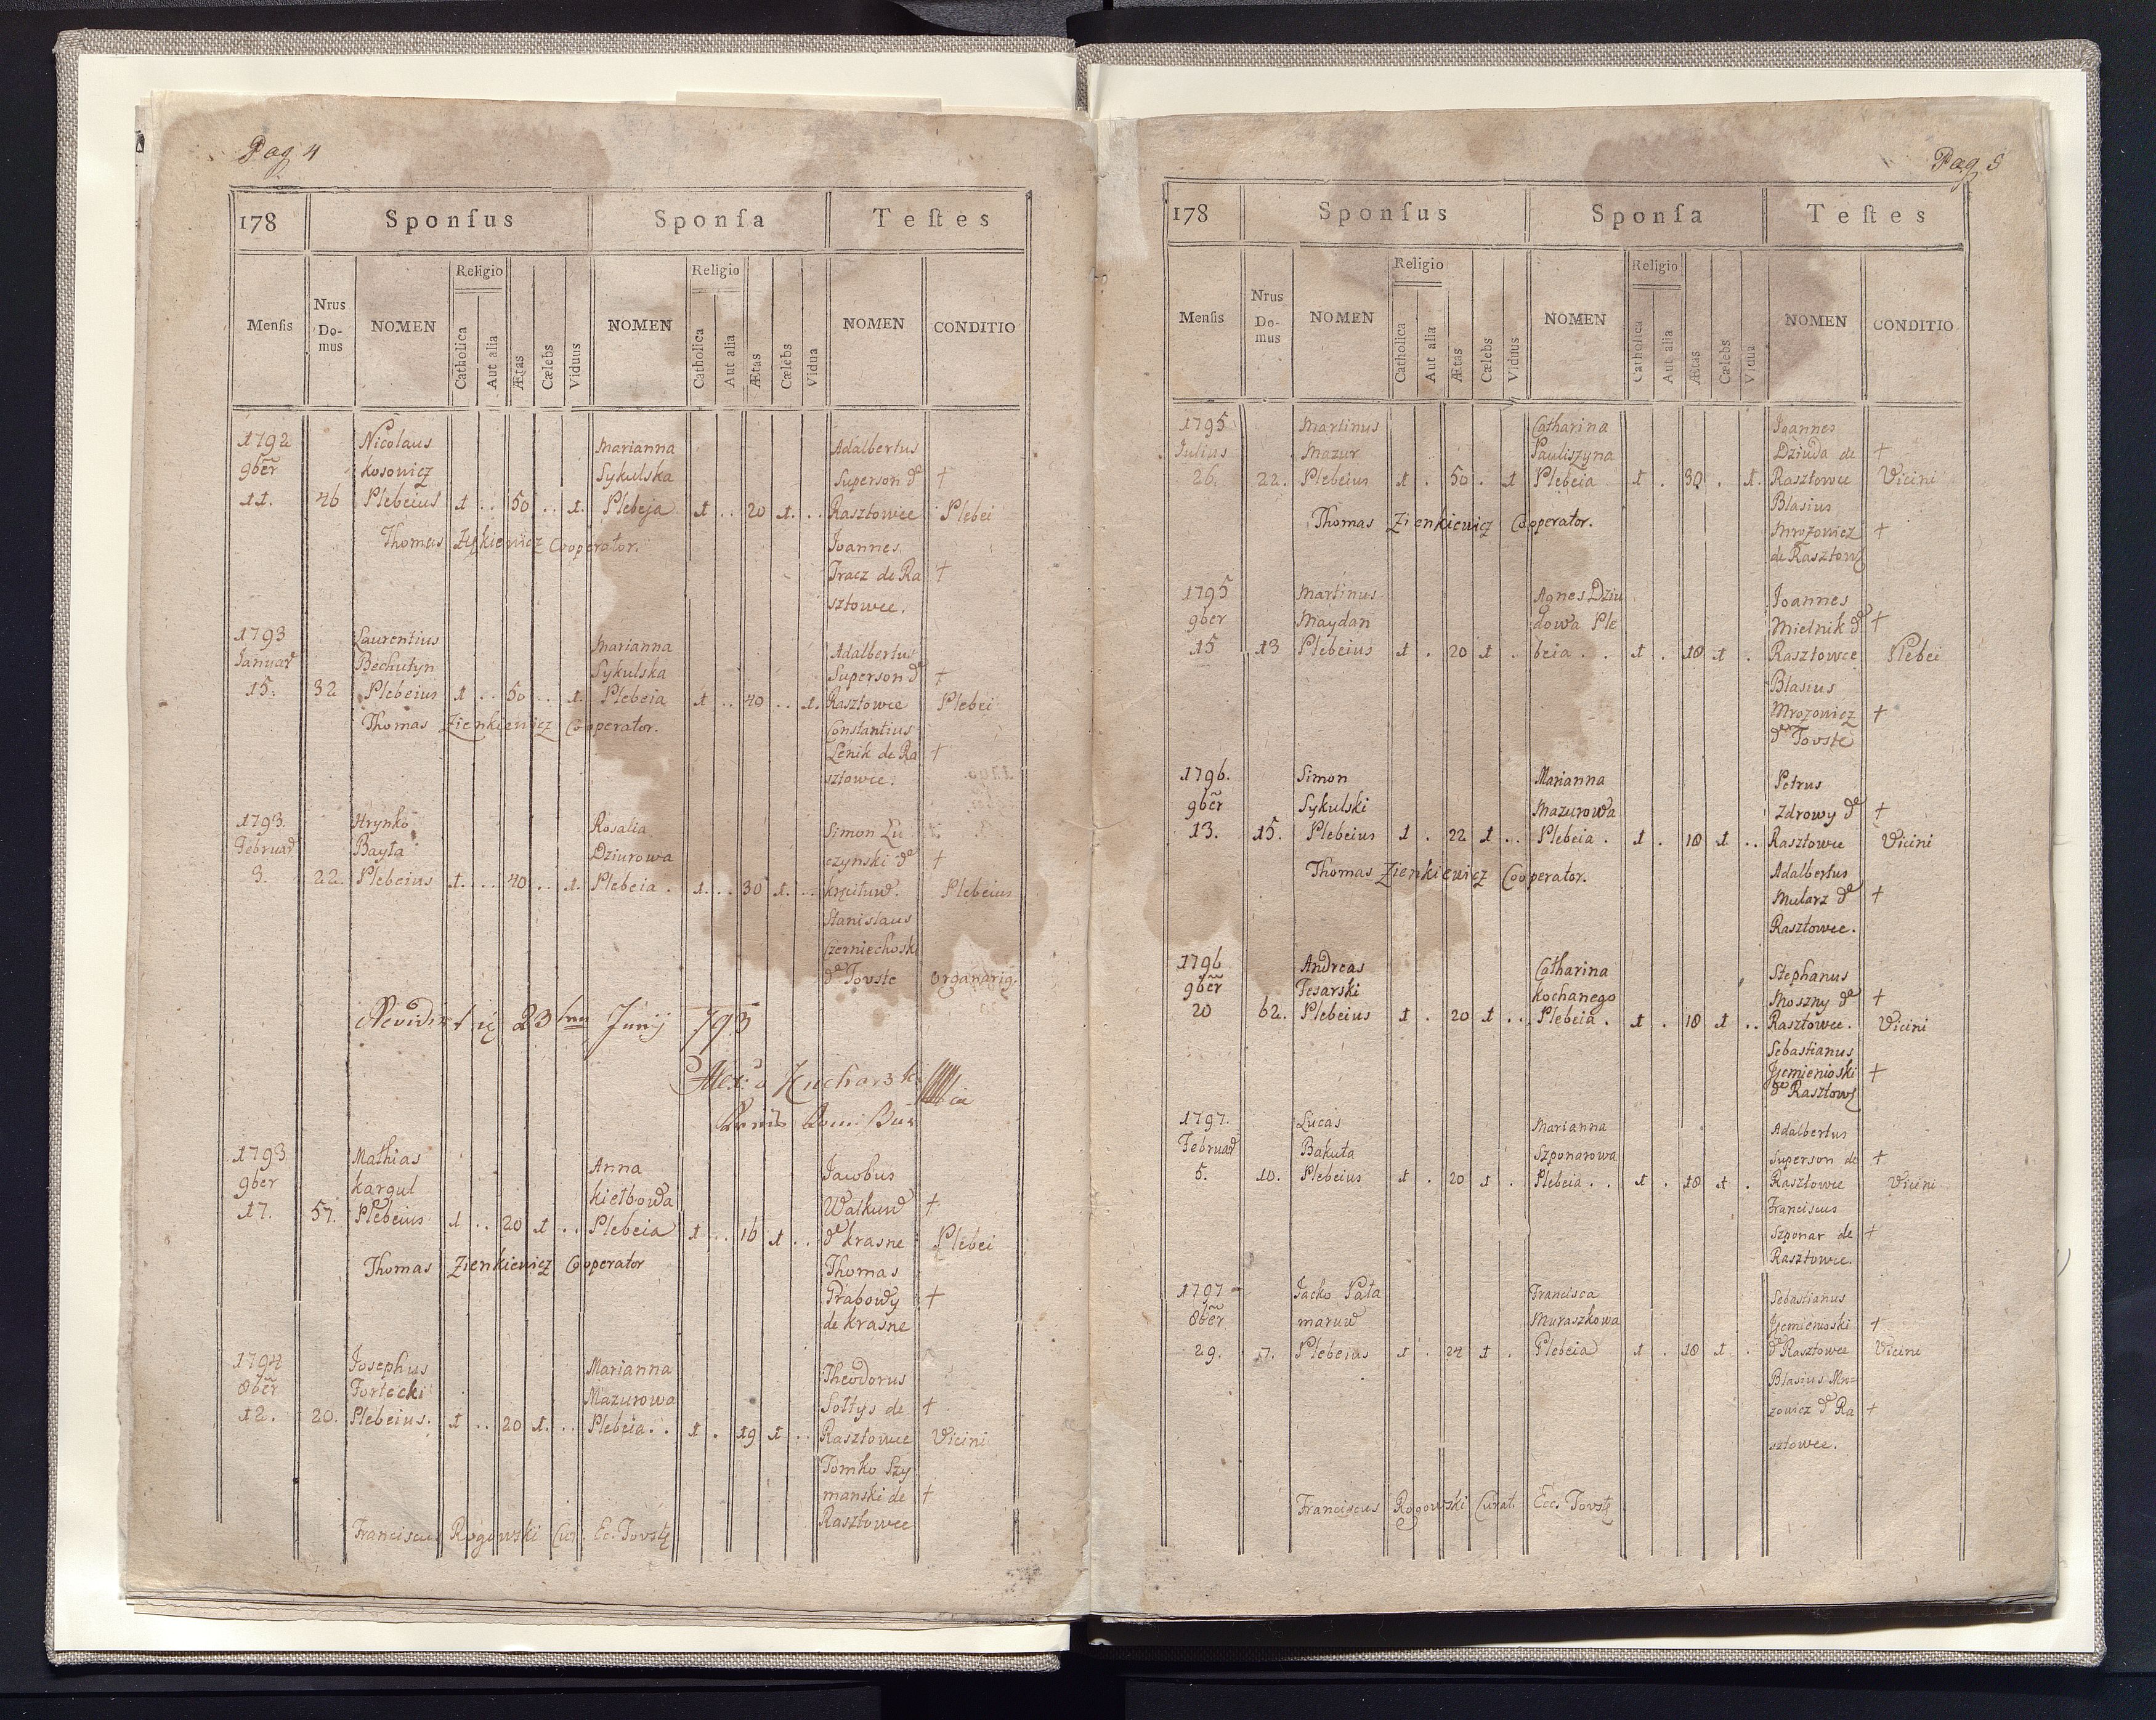 Pag 4
178 Sponſus Sponſa Teſtes
Menſis Nrus Do-mus NOMEN Religio Catholica Aut alia Ætas Cælebs Viduus NOMEN Religio Catholica Aut alia Ætas Cælebs Vidua NOMEN CONDITIO
1792 Nicolaus Marianna Adalbertus
9ber Kosowicz Sykulska Superson de +
11. 46 Plebeius 1 .. 50 .. 1. Plebeja 1 .. 20 1. .. Rasztowce Plebei
Thomas Cooperator. Joannes
Tracz de Ra +
sztowce.
1793 Laurentius Marianna Adalbertus
Januar Bechutyn Sykulska Superson de +
15. 32 Plebeius 1 .. 50 .. 1. Plebeia 1 .. 40 .. 1. Rasztowce Plebei
Thomas Zienkiewicz Cooperator. Constantius
Lenik de Ra +
sztowce.
1793. Hrynko Rosalia Simon Lu
Februar Bayta Dziurowa czynski de +
3. 22. Plebeius 1. .. 40 .. 1. Plebeia . 1. .. 30 1. .. Plebeius
Stanislaus
Czerniechoski
de Tovste Organarig.
Revidi 23 Junij 793
Kucharski
1793 Mathias Anna Jacobus
9ber Kargul Kiełbowa Walkuw +
17. 57. Plebeius 1 .. 20 1 .. Plebeia 1 .. 16 1 .. de Krasne Plebei
Thomas Zienkiewicz Cooperator Thomas
Grabowy +
de Krasne
1794 Josephus Marianna Theodorus
8ber Fortecki Mazurowa Sołtys de +
12. 20. Plebeius. 1 .. 20 1. .. Plebeia .. 1 . 19 1 .. Rasztowce Vicini
Tomko Szy
manski de +
Rasztowce
Franciscus Rogowski Cur. Ec. Tovste
Pag 5
178 Sponſus Sponſa Teſtes
Menſis Nrus Do-mus NOMEN Religio Catholica Aut alia Ætas Cælebs Viduus NOMEN Religio Catholica Aut alia Ætas Cælebs Vidua NOMEN CONDITIO
1795 Martinus Catharina Joannes
Julius Mazur Pauliszyna Dziuda de +
26. 22. Plebeius 1 . 50 . 1 Plebeia 1 . 30 . 1. Rasztowce Vicini
Blasius
Thomas Zienkiewicz Cooperator. Mrozowicz +
de Rasztow
1795 Martinus Agnes Dziu Joannes
9ber Maydan dowa Ple Mielnik de +
15 13 Plebeius 1 . 20 1 . beia . . 1 . 18 1 . Rasztowce Plebei
Blasius
Mrozowicz +
de Tovste
1796. Simon Marianna Petrus
9ber Sykulski Mazurowa Zdrowy de +
13. 15. Plebeius 1 . 22 1 .. Plebeia . 1 . 18 1 .. Rasztowce Vicini
Thomas Zienkiewicz Cooperator. Adalbertus
Mularz de +
Rasztowce.
1796 Andreas Catharina Stephanus
9ber Tesarski Kochanego Moszny de +
20 62. Plebeius 1 . 20 1 .. Plebeia . 1 . 18 1 .. Rasztowce. Vicini
Sebastianus
Jzemienioski +
de Rasztow
1797. Lucas Marianna Adalbertus
Februar Bakuta Szponarowa Superson de +
5. 10. Plebeius 1 . 20 1 . Plebeia . . 1 . 18 1 . Rasztowce Vicini
Franciscus
Szponar de +
Rasztowce.
1797 Jacko Pała Francisca Sebastianus
8ber maruw Muraszkowa Jzemienioski +
29. 7. Plebeius 1 . 24 1 . Plebeia 1 . 18 1 . de Rasztowce Vicini
Blasius Mro=
zowicz de Ra +
sztowce.
Franciscus Rogowski Curat. Ecc. Tovste